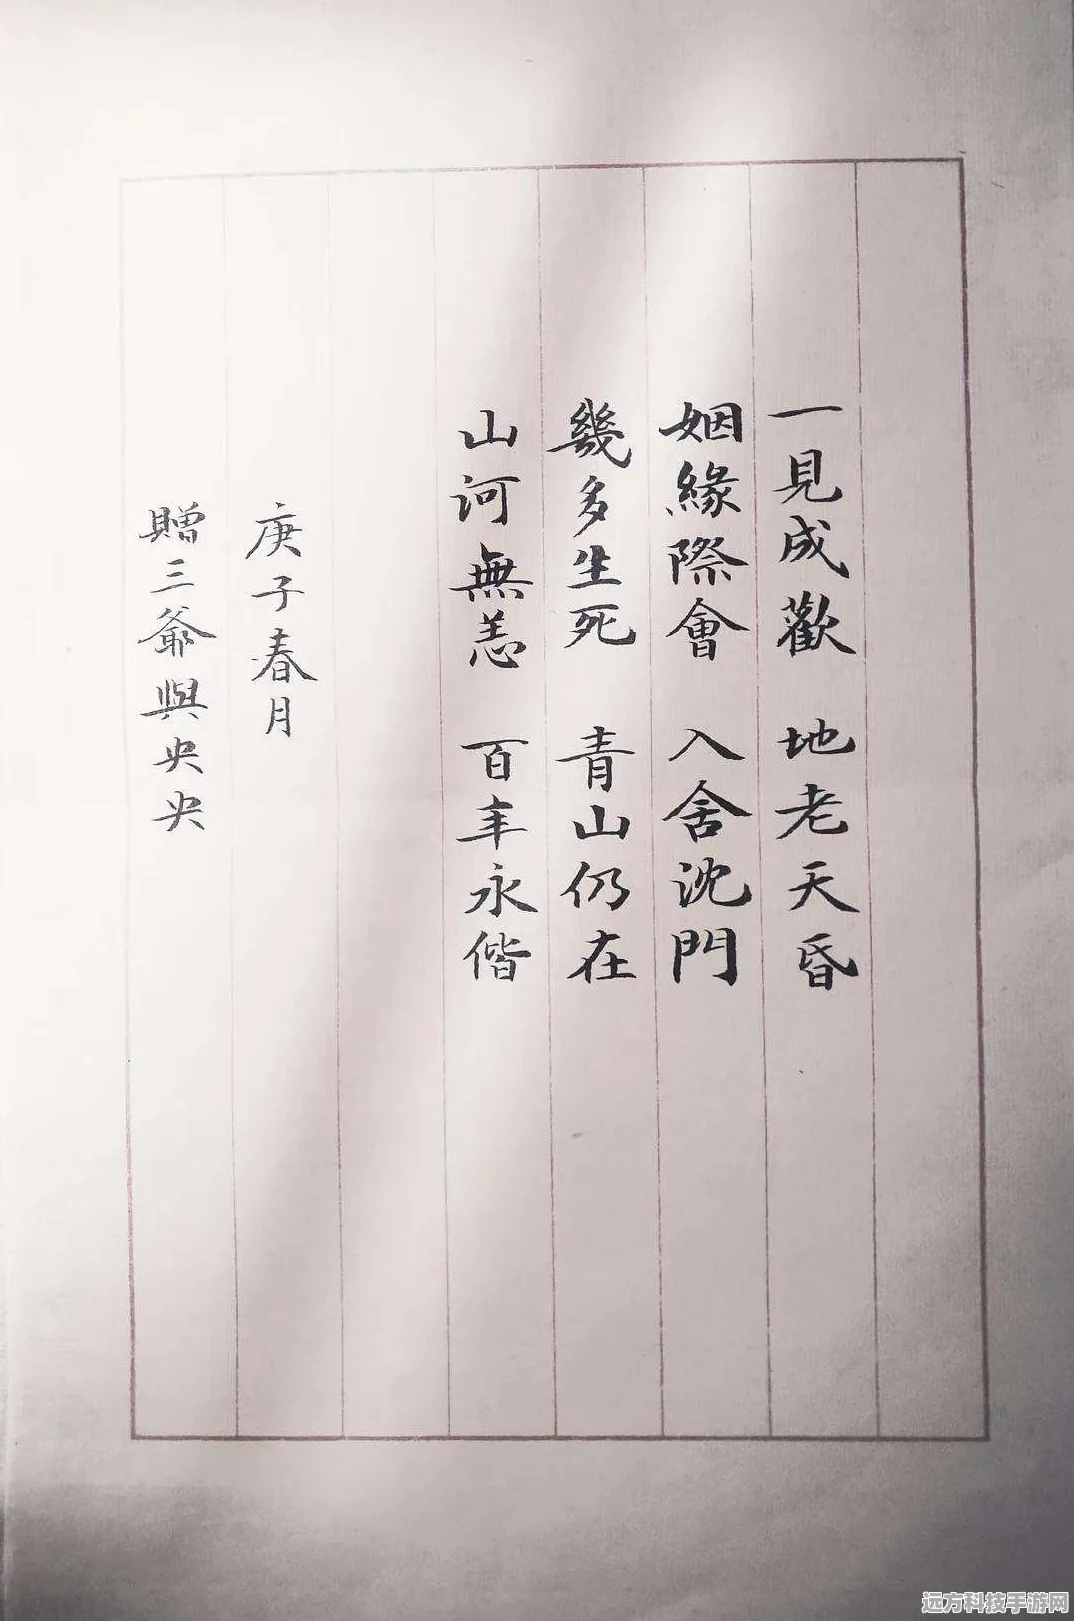 一見成歡 地老天昏
姻緣際會 入舍沈門
幾多生死 青山仍在
山河無恙 百年永偕
庚子春月
贈三爺與央央
远方科技手游网